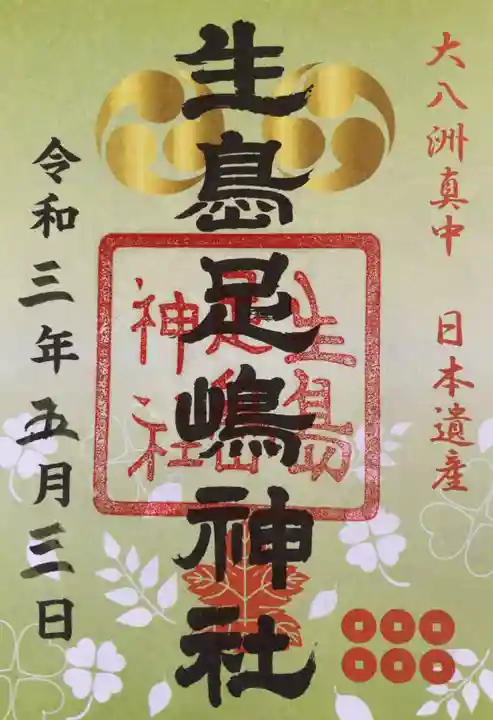 大八洲真中 日本遺産
生島足嶋神社
生島足嶋神社
令和三年五月三日